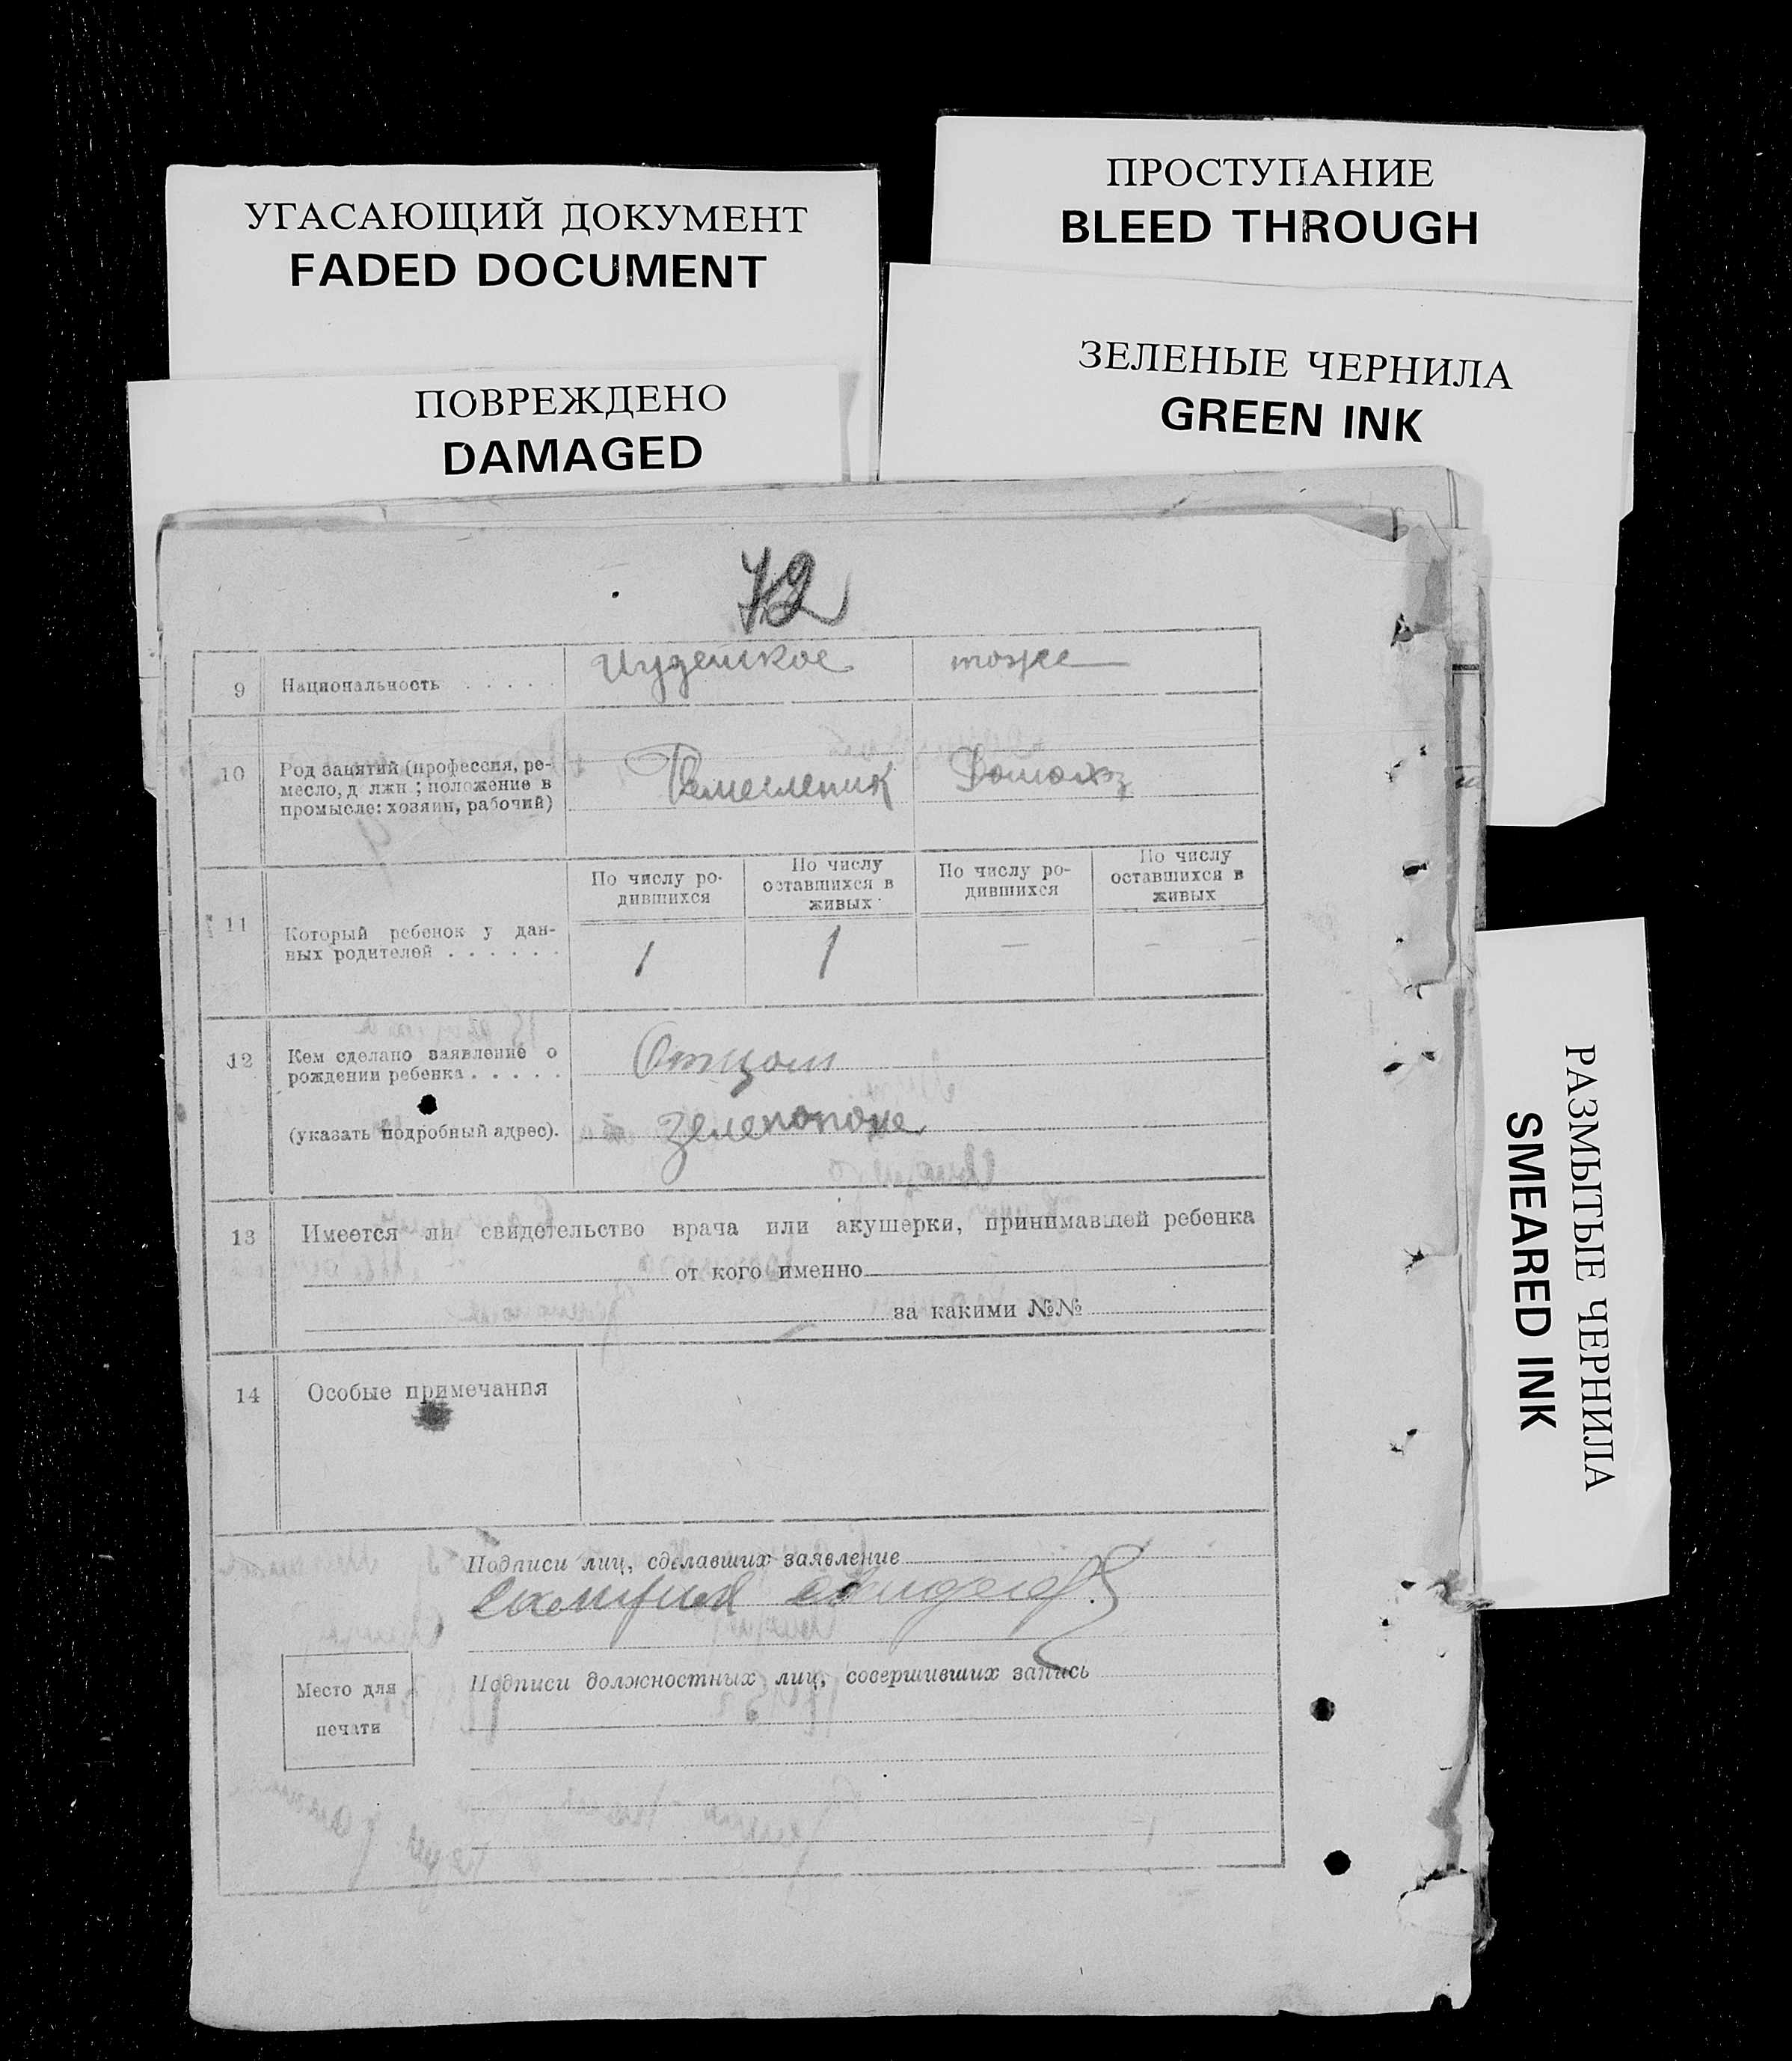 УГАСАЮЩИЙ ДОКУМЕНТ
FADED DOCUMENT
ПРОСТУПАНИЕ
BLEED THROUGH
ПОВРЕЖДЕНО
DAMAGED
ЗЕЛЕНЫЕ ЧЕРНИЛА
GREEN INK
72
9 Национальность . . . . . Иудейское тоже
10 Род занятий (профессия, ре-
месло, д лжн ; положение в
промысле: хозяин, рабочий)
Ремесленик Домохоз
11 Который ребенок у дан-
ных родителей . . . . . .
По числу ро-
дившихся
По числу
оставшихся в
живых
По числу ро-
дившихся
По числу
оставшихся в
живых
1 1 — — —
12 Кем сделано заявление о
рождении ребенка . . . . .
Отцом
(указать подробный адрес).
Зеленополе
13 Имеется ли свидетельство врача или акушерки, принимавшей ребенка
от кого именно
за какими №№
14 Особые примечания
Подписи лиц, сделавших заявление
Место для
печати
Подписи должностных лиц, совершивших запись
РАЗМЫТЫЕ ЧЕРНИЛА
SMEARED INK